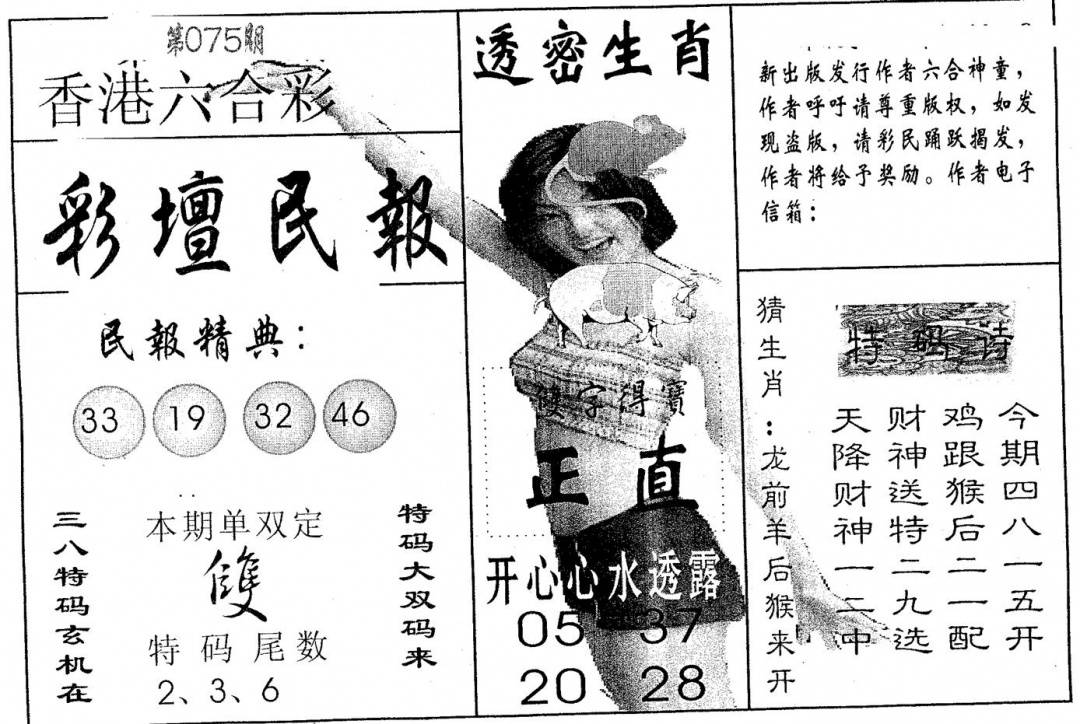 第075期
香港六合彩
彩壇民報
民報精典：
33 19 32 46
三八特码玄机在
本期单双定
雙
特码尾数
2、3、6
特码大双码来
透密生肖
雙字得寶
正直
开心心水透露
05 37
20 28
新出版发行作者六合神童，
作者呼吁请尊重版权，如发
现盗版，请彩民踊跃揭发，
作者将给予奖励。作者电子
信箱：
猜生肖：龙前羊后猴来开
特码诗
今期四八一五开
鸡跟猴后二一配
财神送特二九选
天降财神一二中